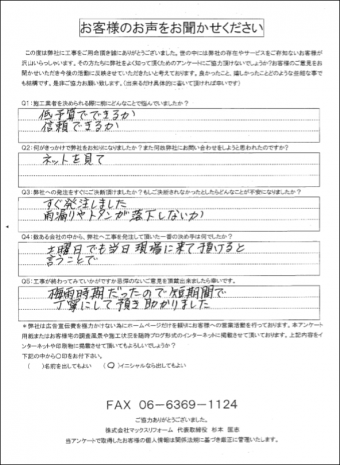 お客様のお声をお聞かせください
この度は弊社に工事をご用命頂き誠にありがとうございました。世の中には弊社の存在やサービスをご存知ないお客様が
沢山いらっしゃいます。その方たちに弊社をよく知って頂くためのアンケートにご協力頂けないでしょうか?お客様のご意見をお
聞かせいただき今後の活動に反映させていただきたいと考えております。良かったこと、嬉しかったことどのような些細な事で
も結構です。是非ご協力お願い致します。(出来るだけ具体的に書いて頂ければ幸いです)
Q1:施工業者を決められる際に何にどんなことで悩んでいましたか?
低予算でできるか
信頼できるか
Q2:何がきっかけで弊社をお知りになりましたか?また何故弊社にお問い合わせをしようと思われたのですか?
ネットを見て
Q3:弊社への発注をすぐにご決断頂けましたか?もしご決断されなかったとしたらどんなことが不安になりましたか?
すぐ発注しました
雨漏りやトタンが落下しないか
Q4:数ある会社の中から、弊社へ工事を発注して頂いた一番の決め手は何でしたか?
土曜日でも当日現場に来て頂けると
言うことで
Q5:工事が終わってみていかがですか忌憚のないご意見を頂戴出来ましたら幸いです。
梅雨時期だったので短期間で
丁寧にして頂き助かりました
*弊社は広告宣伝費を極力かけない為にホームページだけを頼りにお客様への営業活動を行っております。本アンケート
用紙またはお客様宅の調査風景や施工状況を随時ブログ形式のインターネットに掲載させて頂いております。上記内容をイ
ンターネットや印刷物に掲載させて頂いてもよろしいでしょうか?
下記の中から○印をお付下さい。
( )名前を出してもよい (○)イニシャルなら出してもよい
FAX 06-6369-1124
ご協力ありがとうございました。
株式会社マックスリフォーム 代表取締役 杉本 匡志
当アンケートで取得したお客様の個人情報は関係法規に基づき厳正に管理いたします。